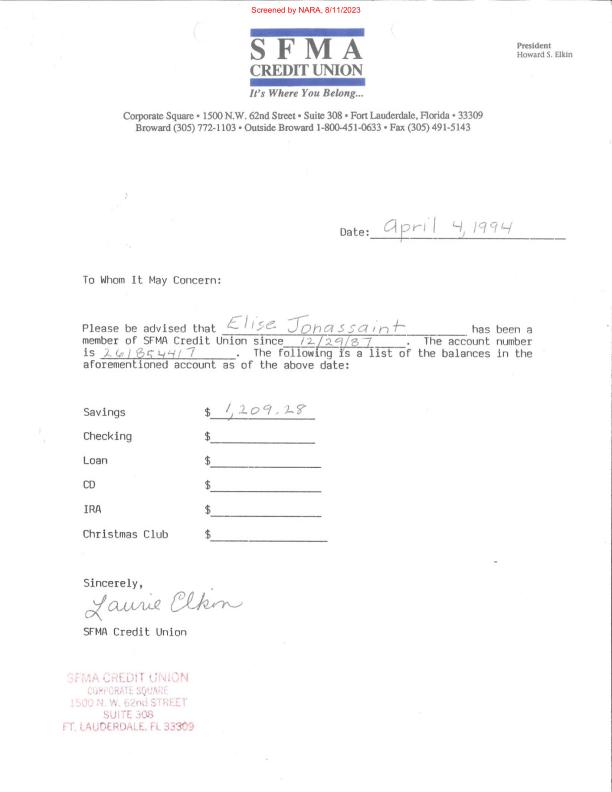 Screened by NARA, 8/11/2023
SFMA
CREDIT UNION
It's Where You Belong...
President
Howard S. Elkin
Corporate Square • 1500 N.W. 62nd Street • Suite 308 • Fort Lauderdale, Florida • 33309
Broward (305) 772-1103 • Outside Broward 1-800-451-0633 • Fax (305) 491-5143
Date: April 4, 1994
To Whom It May Concern:
Please be advised that Elise Jonassaint has been a
member of SFMA Credit Union since 12/29/87. The account number
is 261854417. The following is a list of the balances in the
aforementioned account as of the above date:
Savings $ 1,209.28
Checking $
Loan $
CD $
IRA $
Christmas Club $
Sincerely,
Laurie Elkin
SFMA Credit Union
SFMA CREDIT UNION
CORPORATE SQUARE
1500 N. W. 62nd STREET
SUITE 308
FT. LAUDERDALE, FL 33309